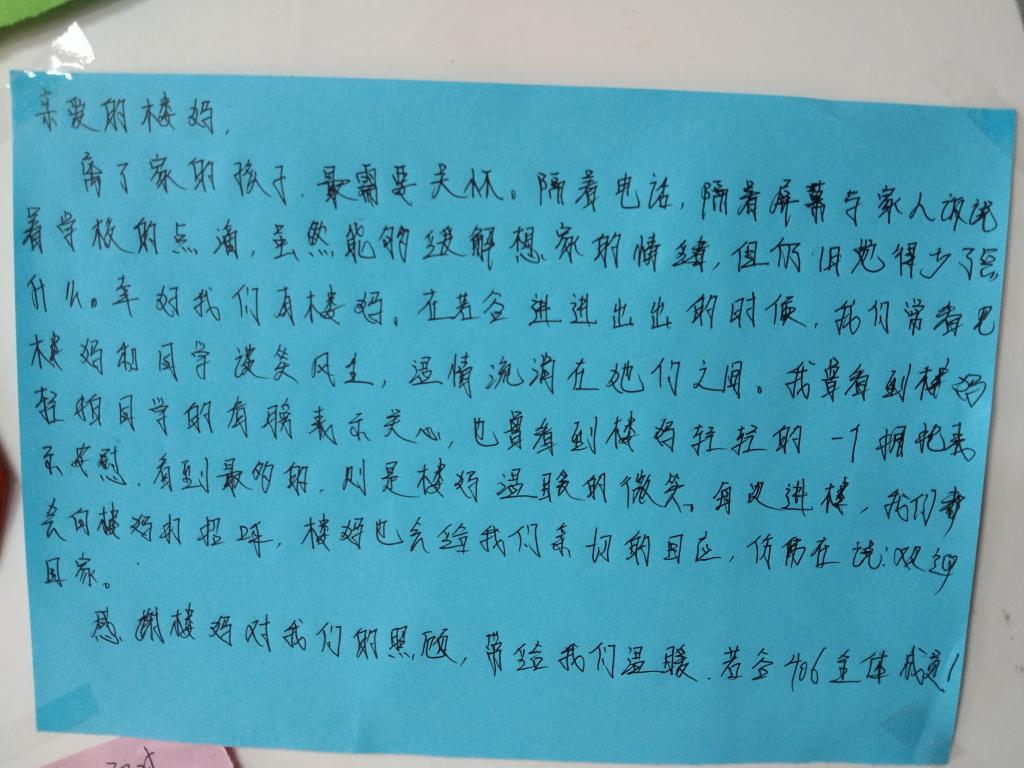 亲爱的楼妈,
离了家的孩子,最需要关怀。隔着电话,隔着屏幕与家人诉说
着学校的点滴,虽然能够缓解想家的情绪,但仍旧觉得少了点
什么。幸好我们有楼妈。在若谷进进出出的时候,我们常看见
楼妈和同学谈笑风生,温情流淌在她们之间。我曾看到楼妈
轻拍同学的肩膀表示关心,也曾看到楼妈轻轻的一个拥抱表
示安慰,看到最多的,则是楼妈温暖的微笑。每次进楼,我们都
会向楼妈打招呼,楼妈也会给我们亲切的回应,仿佛在说:欢迎
回家。
感谢楼妈对我们的照顾,带给我们温暖.若谷406全体成员